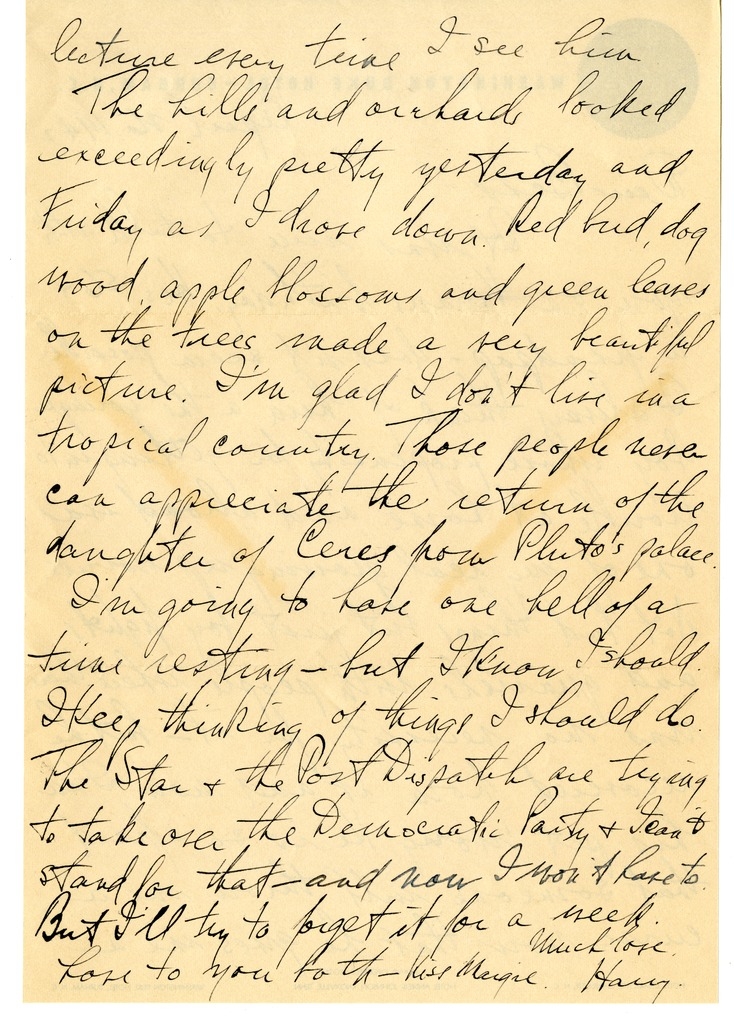 lecture every time I see him
The hills and orchards looked
exceedingly pretty yesterday and
Friday as I drove down. Red bud, dog
wood, apple blossoms and green leaves
on the trees made a very beautiful
picture. I'm glad I don't live in a
tropical country. Those people never
can appreciate the return of the
daughter of Ceres from Pluto's palace.
I'm going to have one hell of a
time resting - but I know I should.
I keep thinking of things I should do.
The Star & the Post Dispatch are trying
to take over the Democratic Party & I can't
stand for that - and now I won't have to.
But I'll try to forget it for a week.
Much love.
Love to you both - Kiss Margie. Harry.